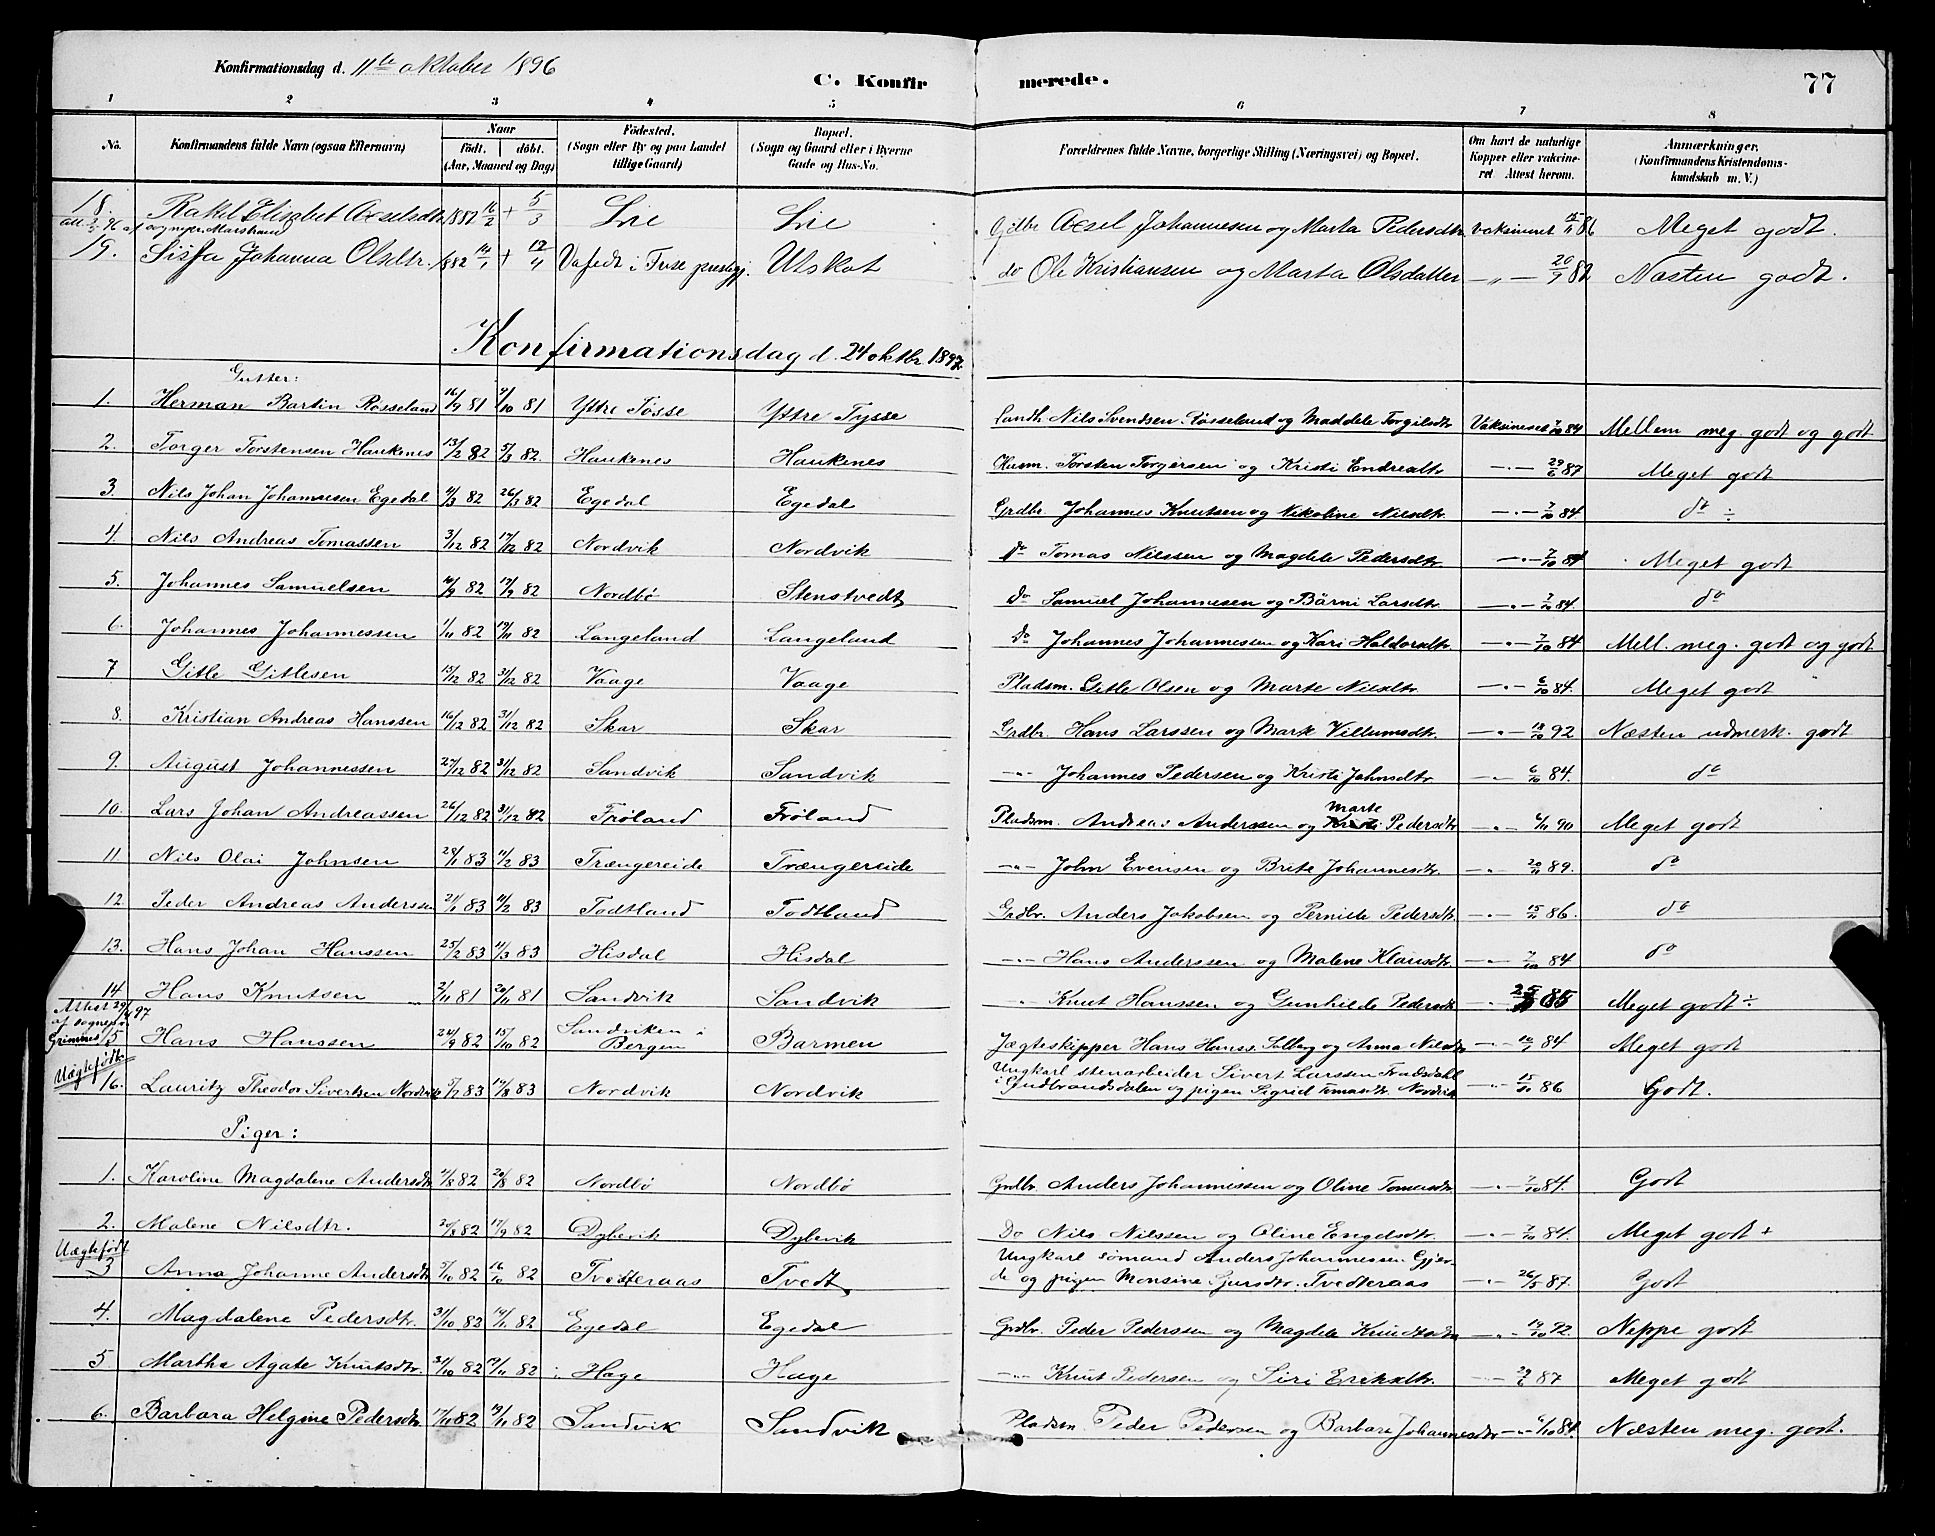 Konfirmationsdag d. 11te oktober 1896
C. Konfirmerede.
77
1 2 3 4 5 6 7 8
No. Konfirmandens fulde Navn (ogsaa Efternavn) Naar født. døbt. (Aar, Maaned og Dag) Fødested. (Sogn eller By og paa Landet tillige Gaard) Bopæl. (Sogn og Gaard eller i Byerne Gade og Hus-No. Forældrenes fulde Navne, borgerlige Stilling (Næringsvei) og Bopæl. Om havt de naturlige Kopper eller vakcineret. Attest herom. Anmærkninger. (Konfirmandens Kristendomskundskab m. V.)
18. Rakel Elisabet Axelsdtr. 1882 16/2 + 5/3 Lie Lie Gdbr Axel Johannesen og Marta Pedersdtr vaksineret 86 Meget godt.
sognepr. Marstrand
19. Sissa Johanna Olsdtr. 882 + Utskot do Ole Kristiansen og Marta Olsdatter —"— 82 Næsten godt.
Konfirmationsdag d. 24 oktbr 1897.
Gutter:
1. Herman Bartin Røsseland 16/9 81 9/10 81 Yttre Tøsse Yttre Tysse Landh. Nils Svendsen Røsseland og Maddele Torgilsdtr Vaksineret 7/10 84 Mellem meg. godt og godt
2. Torger Torstensen Haukenes 13/2 82 5/3 82. Haukenes Haukenes Husm. Torsten Torgersen og Kristi Endresdtr —"— 29/6 87 Meget godt
3. Nils Johan Johannesen Egedal 4/3 82 26/3 82 Egedal Egedal Grdbr. Johannes Knutsen og Nikoline Nilsdtr. —"— 7/10 84. do ÷
4. Nils Andreas Tomassen 3/12 82 17/12 82 Nordvik Nordvik do Tomas Nilssen og Magdele Pedersdtr. —"— 7/10 84 Meget godt
5. Johannes Samuelsen 82 17/9 82 Nordbø Stenstvedt Do Samuel Johannesen og Børni Larsdtr. —"— 7/10 84. do
6. Johannes Johannessen 1/11 82 19/11 82 Langeland Langeland Do Johannes Johannesen og Kari Haldorsdtr. —"— 7/10 84 Mell. meg. godt og godt
7 Gitle Gitlesen 15/12 82 31/12 82 Vaage Vaage Pladsm. Gitle Olsen og Marte Nilsdtr. —"— 6/10 84. Meget godt
8. Kristian Andreas Hanssen 16/12 82 31/12 82 Skar Skar Grdbr. Hans Larssen og Mark Villumsdtr. —"— 18/10 92 Næsten udmerk. godt
9. August Johannessen 27/12 82 31/12 82 Sandvik Sandvik —"— Johannes Pedersen og Kristi Johnsdtr —"— 6/10 84. do
10. Lars Johan Andreassen 26/12 82 31/12 82 Frøland Frøland Pladsm. Andreas Anderssen og Marte Pedersdtr —"— 6/11 90 Meget godt
11 Nils Olai Johnsen 28/1 83 11/2 83 Trængereide Trængereide —"— John Evensen og Brite Johannesdtr. —"— 89. do
12 Peder Andreas Anderssen 21/1 83 11/2 83 Todtland Todtland Grdbr. Anders Jakobsen og Pernile Pedersdtr. —"— 86. do
13. Hans Johan Hanssen 25/2 83 11/3 83 Hisdal Hisdal —"— Hans Anderssen og Malene Klausdtr. —"— 7/10 84 do
14 Hans Knutsen 2/11 81 20/11 81 Sandvik Sandvik " Knut Hanssen og Gunhilde Pedersdtr —"— 85 Meget godt ÷
Attest 29/ 97 af sognepr. Grimnes
15 Hans Hanssen 24/9 82 15/10 82 Sandviken i Bergen Barmen Jægteskipper Hans Hanss. Solberg og Anna Nilsdtr —"— 84 Meget godt
Uægtefødt
16. Lauritz Theodor Sivertsen Nordvik 5/7 83 19/8 83 Nordvik Nordvik Ungkarl stenarbeider Sivert Larssen i Gudbrandsdalen og pigen Sigrid Tomasdtr. Nordvik —"— 15/10 86 Godt.
Piger:
1. Karoline Magdalene Andersdtr 4/8 82 20/8 82 Nordbø Nordbø Grdbr. Anders Johannessen og Oline Tomasdtr. —"— 7/10 84. Godt
2. Malene Nilsdtr. 82 17/9 82 Dybevik Dybevik Do Nils Nilssen og Oline Engelsdtr. —"— 7/10 84. Meget godt +
Uægtefødt
3 Anna Johanne Andersdtr 5/10 82 16/10 82 Tvedteraas Tvedt Ungkarl sømand Anders Johannessen Gjerde og pigen Monsine Gursdtr. Tvedteraas —"— 26/5 87. Godt
4. Magdalene Pedersdtr. 31/10 82 19/11 82 Egedal Egedal Grdbr. Peder Pederssen og Magdele Knudtsdtr —"— 92 Neppe godt
5 Martha Agate Knutsdtr 31/10 82 19/11 82 Hage Hage —"— Knut Pedersen og Siri Eriksdtr. 29/6 87 Meget godt
6. Barbara Helgine Pedersdtr. 17/11 82 19/11 82 Sandvik Sandvik Pladsm. Peder Pedersen og Barbara Johannesdtr —"— 6/10 84. Næsten meg. godt.